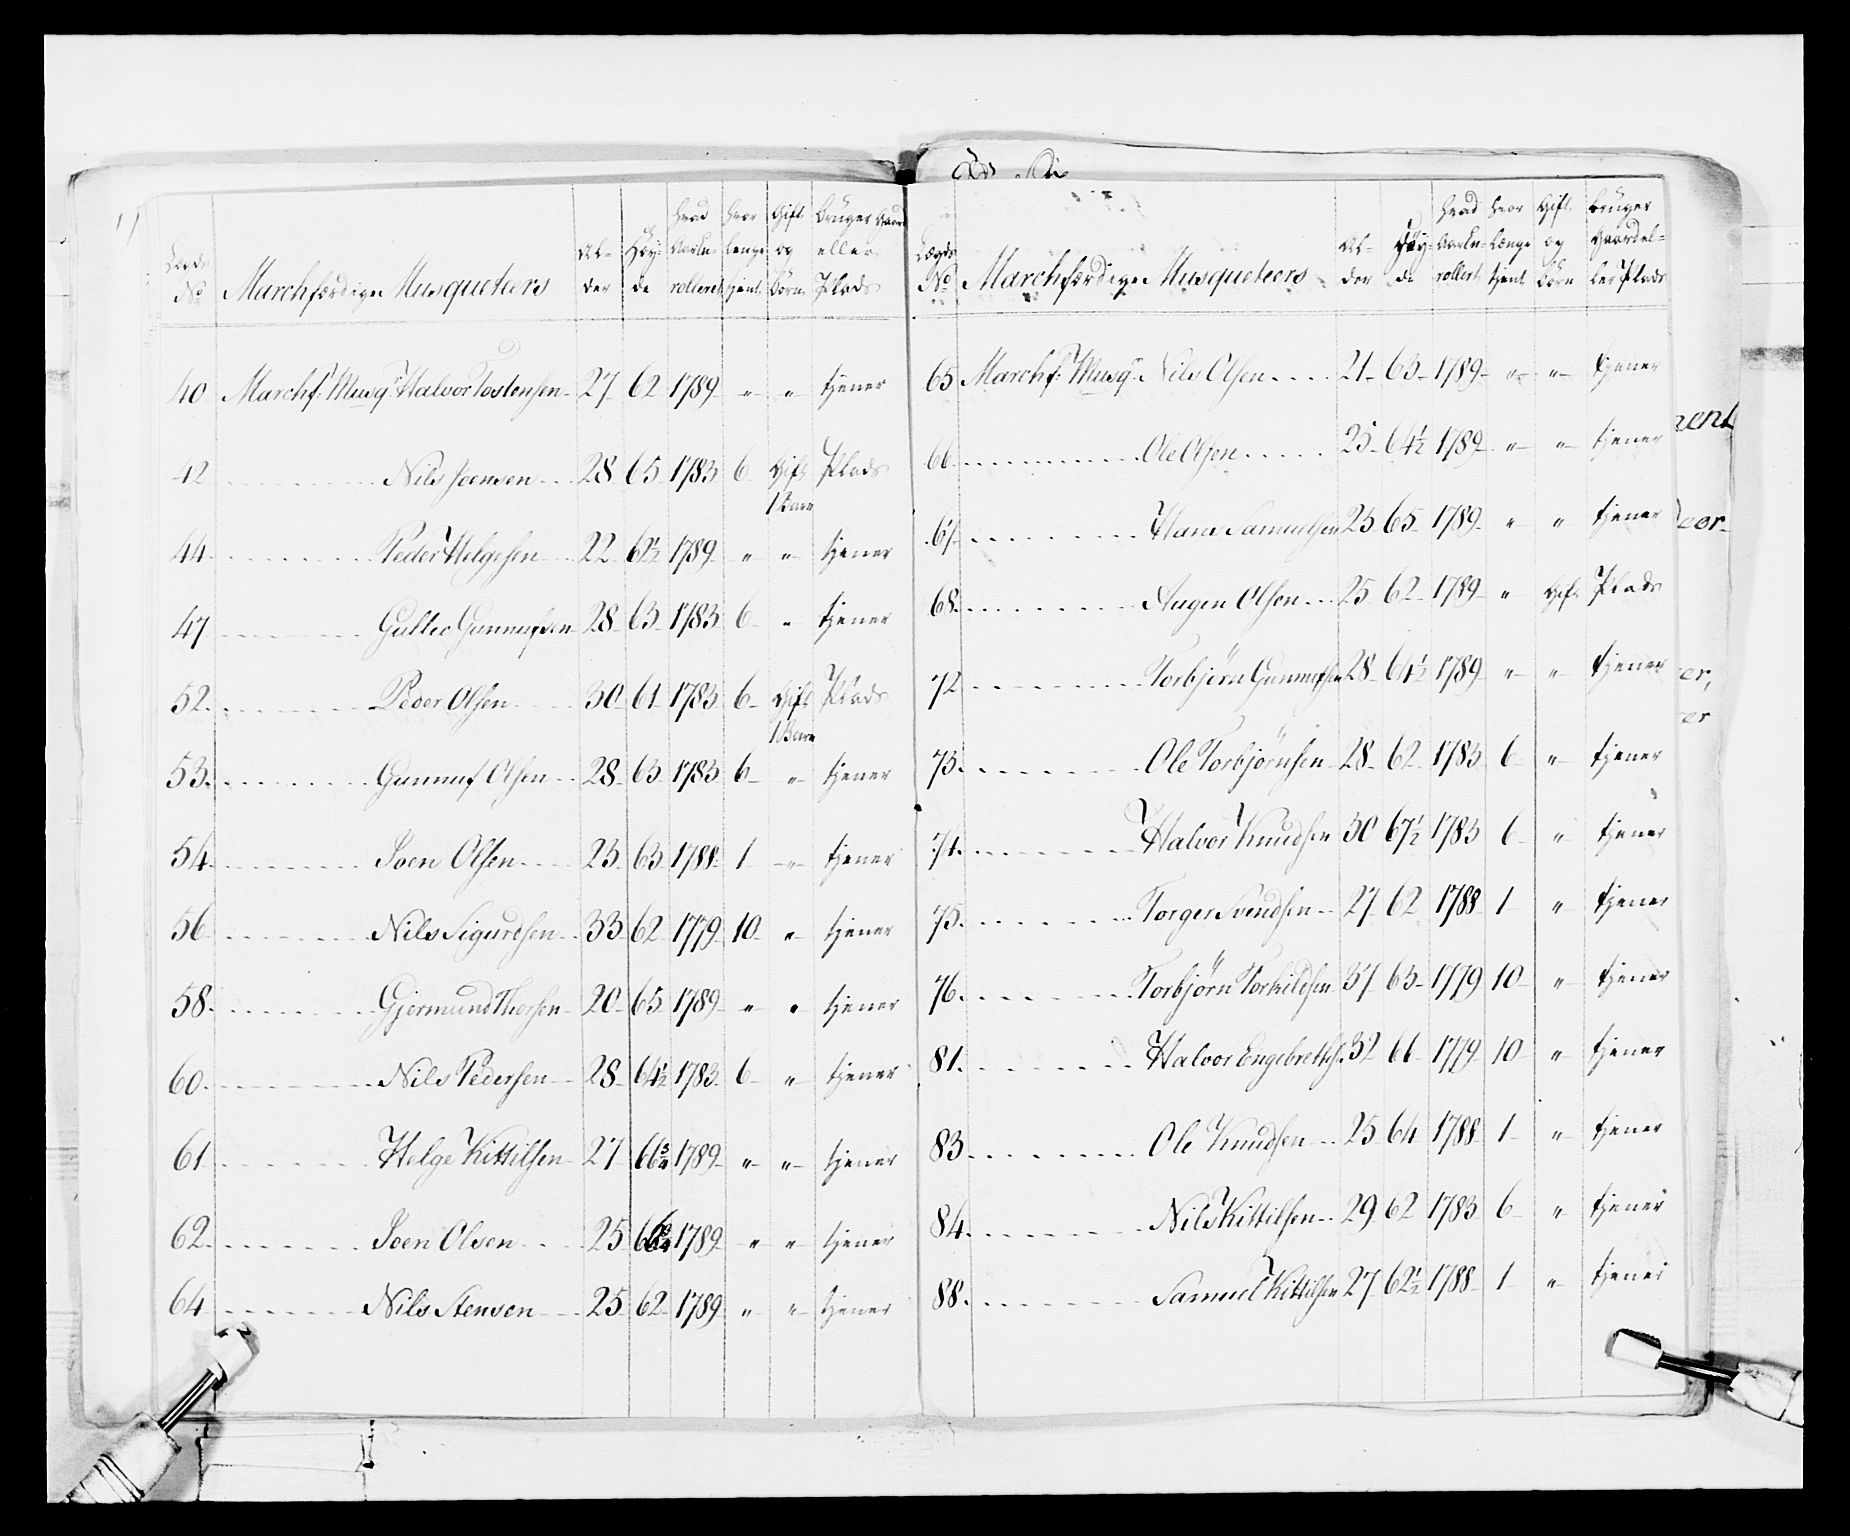 Lægds No Marchfærdige Musqueteers Al-der Høy-de hvad Aar En-rolleret hvor lenge tjent Gift og børn bruger Gaard eller Plads
40 Marchf: Musq: Halvor Tostensen 27 62 1789 " " tjener
42 Nils Joensen 28 65 1783 6 Gift Plads
1 Barn
44 Peder Helgesen 22 62½ 1789 " " tjener
47 Gullic Gunnufsen 28 63 1783 6 " tjener
52. Peder Olsen 30 61 1783 6 Gift Plads
1 Barn
53. Gunnuf Olsen 28 63 1783 6 " tjener
54. Joen Olsen 23 63 1788 1 " tjener
56 Nils Sigurdsen 33 62 1779 10 " tjener
58. Gjermund Thorsen 20 65 1789 " " tjener
60. Nils Pedersen 28 64½ 1783 6 " tjener
61 Helge Kittilsen 27 66¾ 1789 " " tjener
62. Joen Olsen 25 1789 " " tjener
64 Nils Stensen 25 62 1789 " " tjener
Lægds No Marchfærdige Musqueteers Al-der Høy-de hvad Aar En-rollert hvor længe tjent Gift og børn bruger Gaard el-ler Plads
65 Marchf: Musq: Nils Olsen 21 63 1789 " " tjener
66. Ole Olsen 25 64½ 1789 " " tjener
67. Hans Samuelsen 25 65 1789 " " tjener
68. Augen Olsen 25 62 1789 " Gift Plads
72 Torbjørn Gunnufsen 28 64½ 1789 " " tjener
73. Ole Torbjørnsen 28 62 1783 6 " tjener
74. Halvor Knudsen 30 67½ 1783 6 " tjener
75. Torger Svendsen 27 62 1788 1 " tjener
76. Torbjørn Torkildsen 37 63 1779 10 " tjener
81. Halvor Engebreths. 32 66 1779 10 " tjener
83. Ole Knudsen 25 64 1788 1 " tjener
84. Nils Kittilsen 29 62 1783 6 " tjener
88. Samuel Kittilsen 27 62½ 1788 1 " tjener